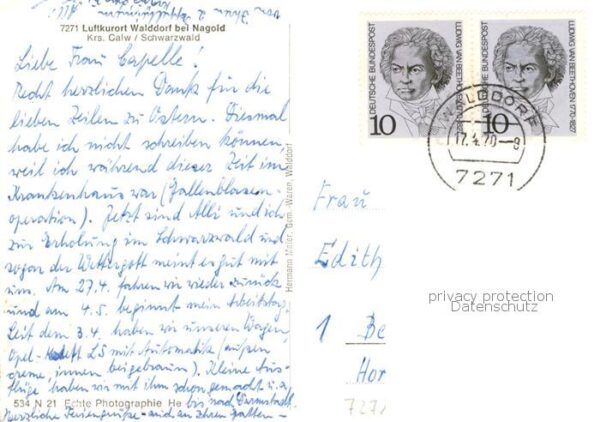 7271 Luftkurort Walddorf bei Nagold
Krs. Calw / Schwarzwald
Liebe Frau Capelle!
Recht herzlichen Dank für die
lieben Zeilen zu Ostern. Diesmal
habe ich nicht schreiben können,
weil ich während dieser Zeit im
Krankenhaus war (Gallenblasen-
operation). Jetzt sind Alli und ich
zur Erholung im Schwarzwald und
sogar der Wettergott meint es gut mit
uns. Am 27.4. fahren wir wieder zurück
und am 4.5. beginnt mein Arbeitstag.
Seit dem 3.4. haben wir unseren Wagen,
Opel-Kadett LS mit Automatik (außen
creme innen beigebraun). Kleine Aus-
flüge haben wir mit ihm schon gemacht u.a.
bis nach Darmstadt.
Herzliche Feriengrüße auch an Ihren Gatten -
534 N 21 Echte Photographie He
Hermann Maier, Gem.-Waren, Walddorf
DEUTSCHE BUNDESPOST
LUDWIG VAN BEETHOVEN 1770-1827
10
DEUTSCHE BUNDESPOST
LUDWIG VAN BEETHOVEN 1770-1827
10
WALDDORF
17.4.70-9
7271
Frau
Edith
privacy protection
Datenschutz
1 Be
Hor
727